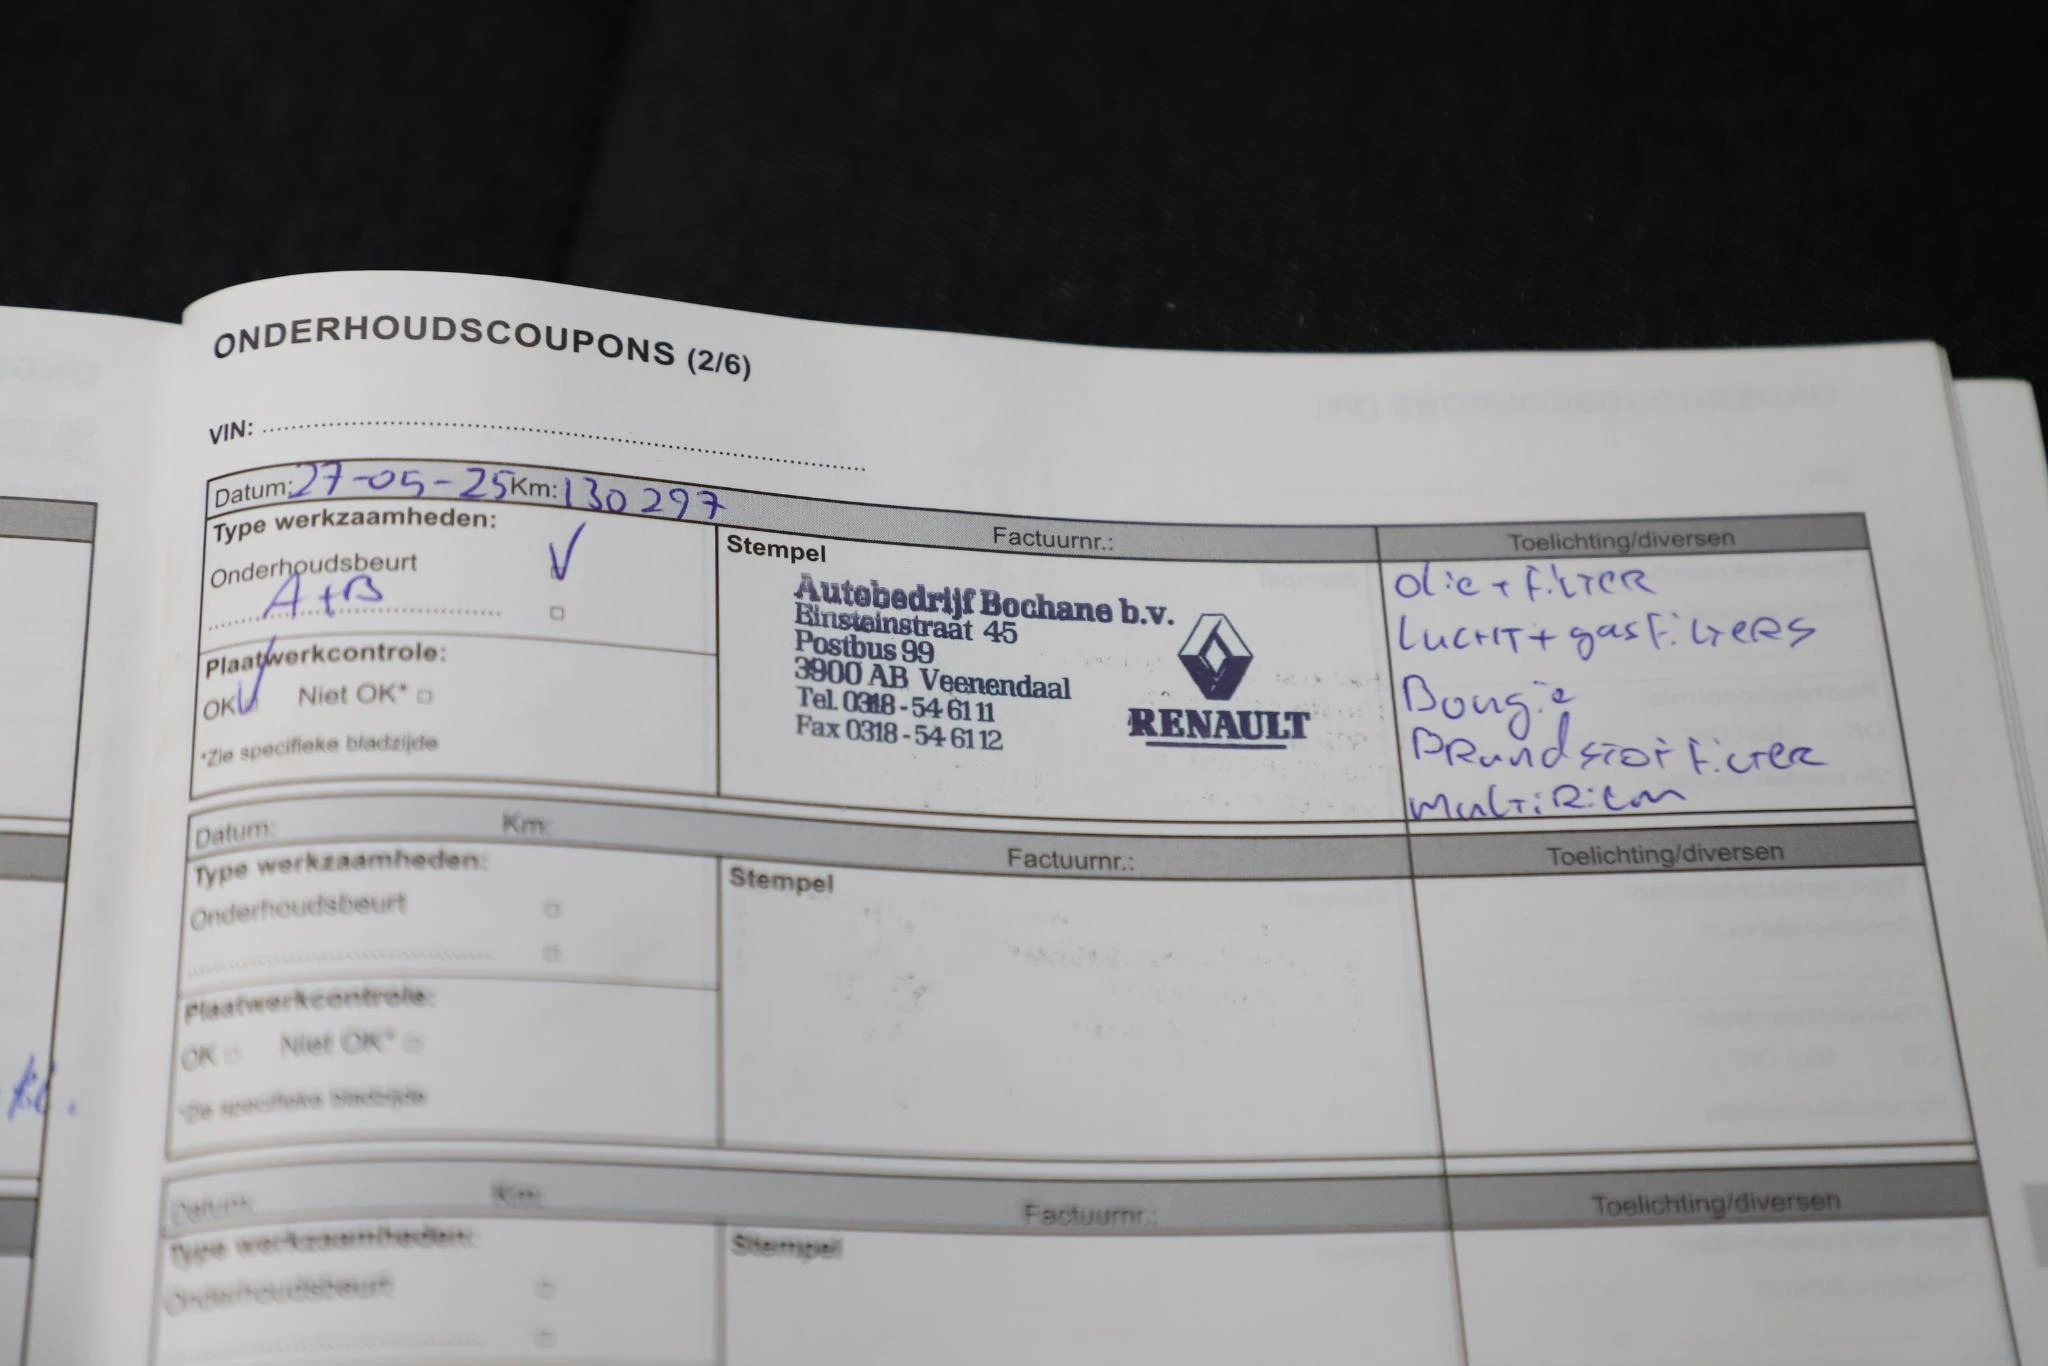 ONDERHOUDSCOUPONS (2/6)
VIN:
Datum: 27-05-25 Km: 130 297
Factuurnr.:
Toelichting/diversen
Type werkzaamheden:
Onderhoudsbeurt V
A+B
Plaatwerkcontrole:
OK Niet OK*
*Zie specifieke bladzijde
Stempel
Autobedrijf Bochane b.v.
Einsteinstraat 45
Postbus 99
3900 AB Veenendaal
Tel. 0318-546111
Fax 0318-546112
RENAULT
olie + filter
Lucht + gasfilters
Bougie
Brandstoffilter
multiriem
Datum: Km:
Factuurnr.:
Toelichting/diversen
Type werkzaamheden:
Onderhoudsbeurt
Plaatwerkcontrole:
OK Niet OK*
*Zie specifieke bladzijde
Stempel
Datum: Km:
Factuurnr.:
Toelichting/diversen
Type werkzaamheden:
Onderhoudsbeurt
Stempel